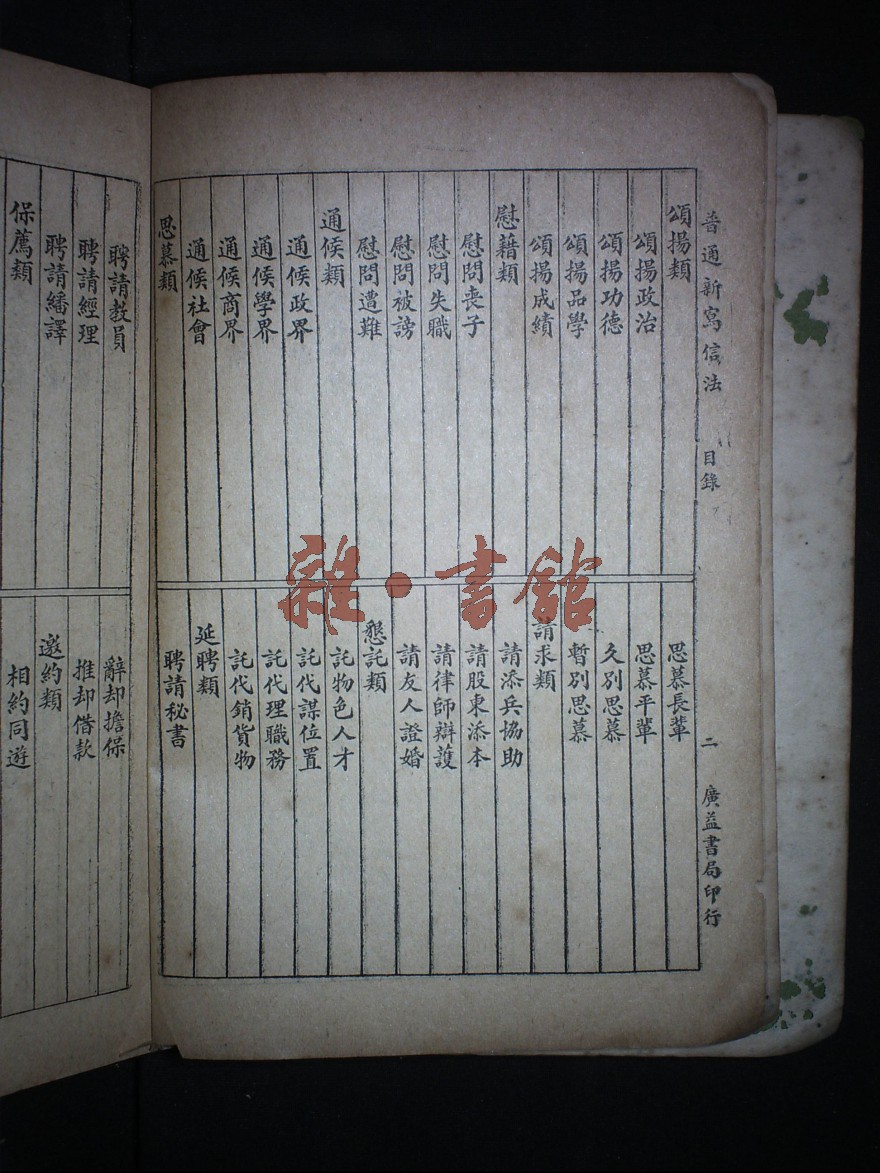 普通新寫信法 目錄 二 廣益書局印行
頌揚類
頌揚政治
頌揚功德
頌揚品學
頌揚成績
慰藉類
慰問喪子
慰問失職
慰問被謗
慰問遭難
通候類
通候政界
通候學界
通候商界
通候社會
思慕類
思慕長輩
思慕平輩
久別思慕
暫別思慕
請求類
請添兵協助
請股東添本
請律師辯護
請友人證婚
懇託類
託物色人才
託代謀位置
託代理職務
託代銷貨物
延聘類
聘請秘書
聘請教員
聘請經理
聘請繙譯
保薦類
辭却擔保
推却借款
邀約類
相約同遊
雜·書館